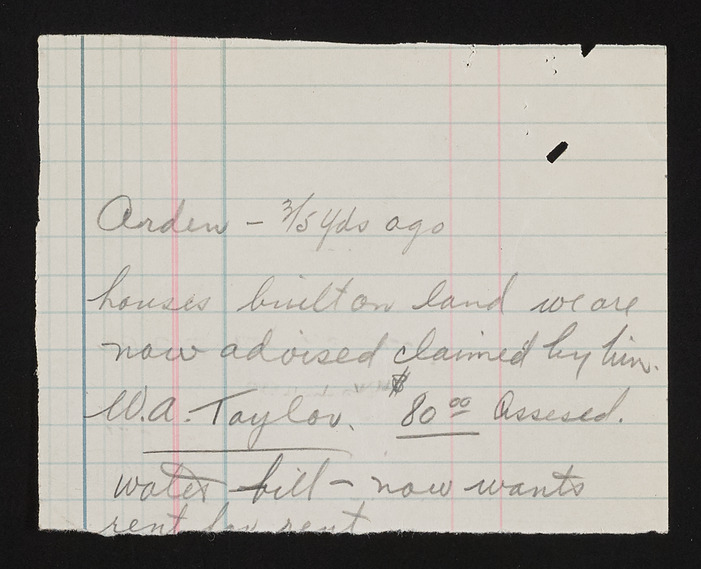 Arden - 3/5 yds ago
houses built on land we are
now advised claimed by him.
W.A. Taylor. $80.00 Assesed.
water bill - now wants
rent for rent